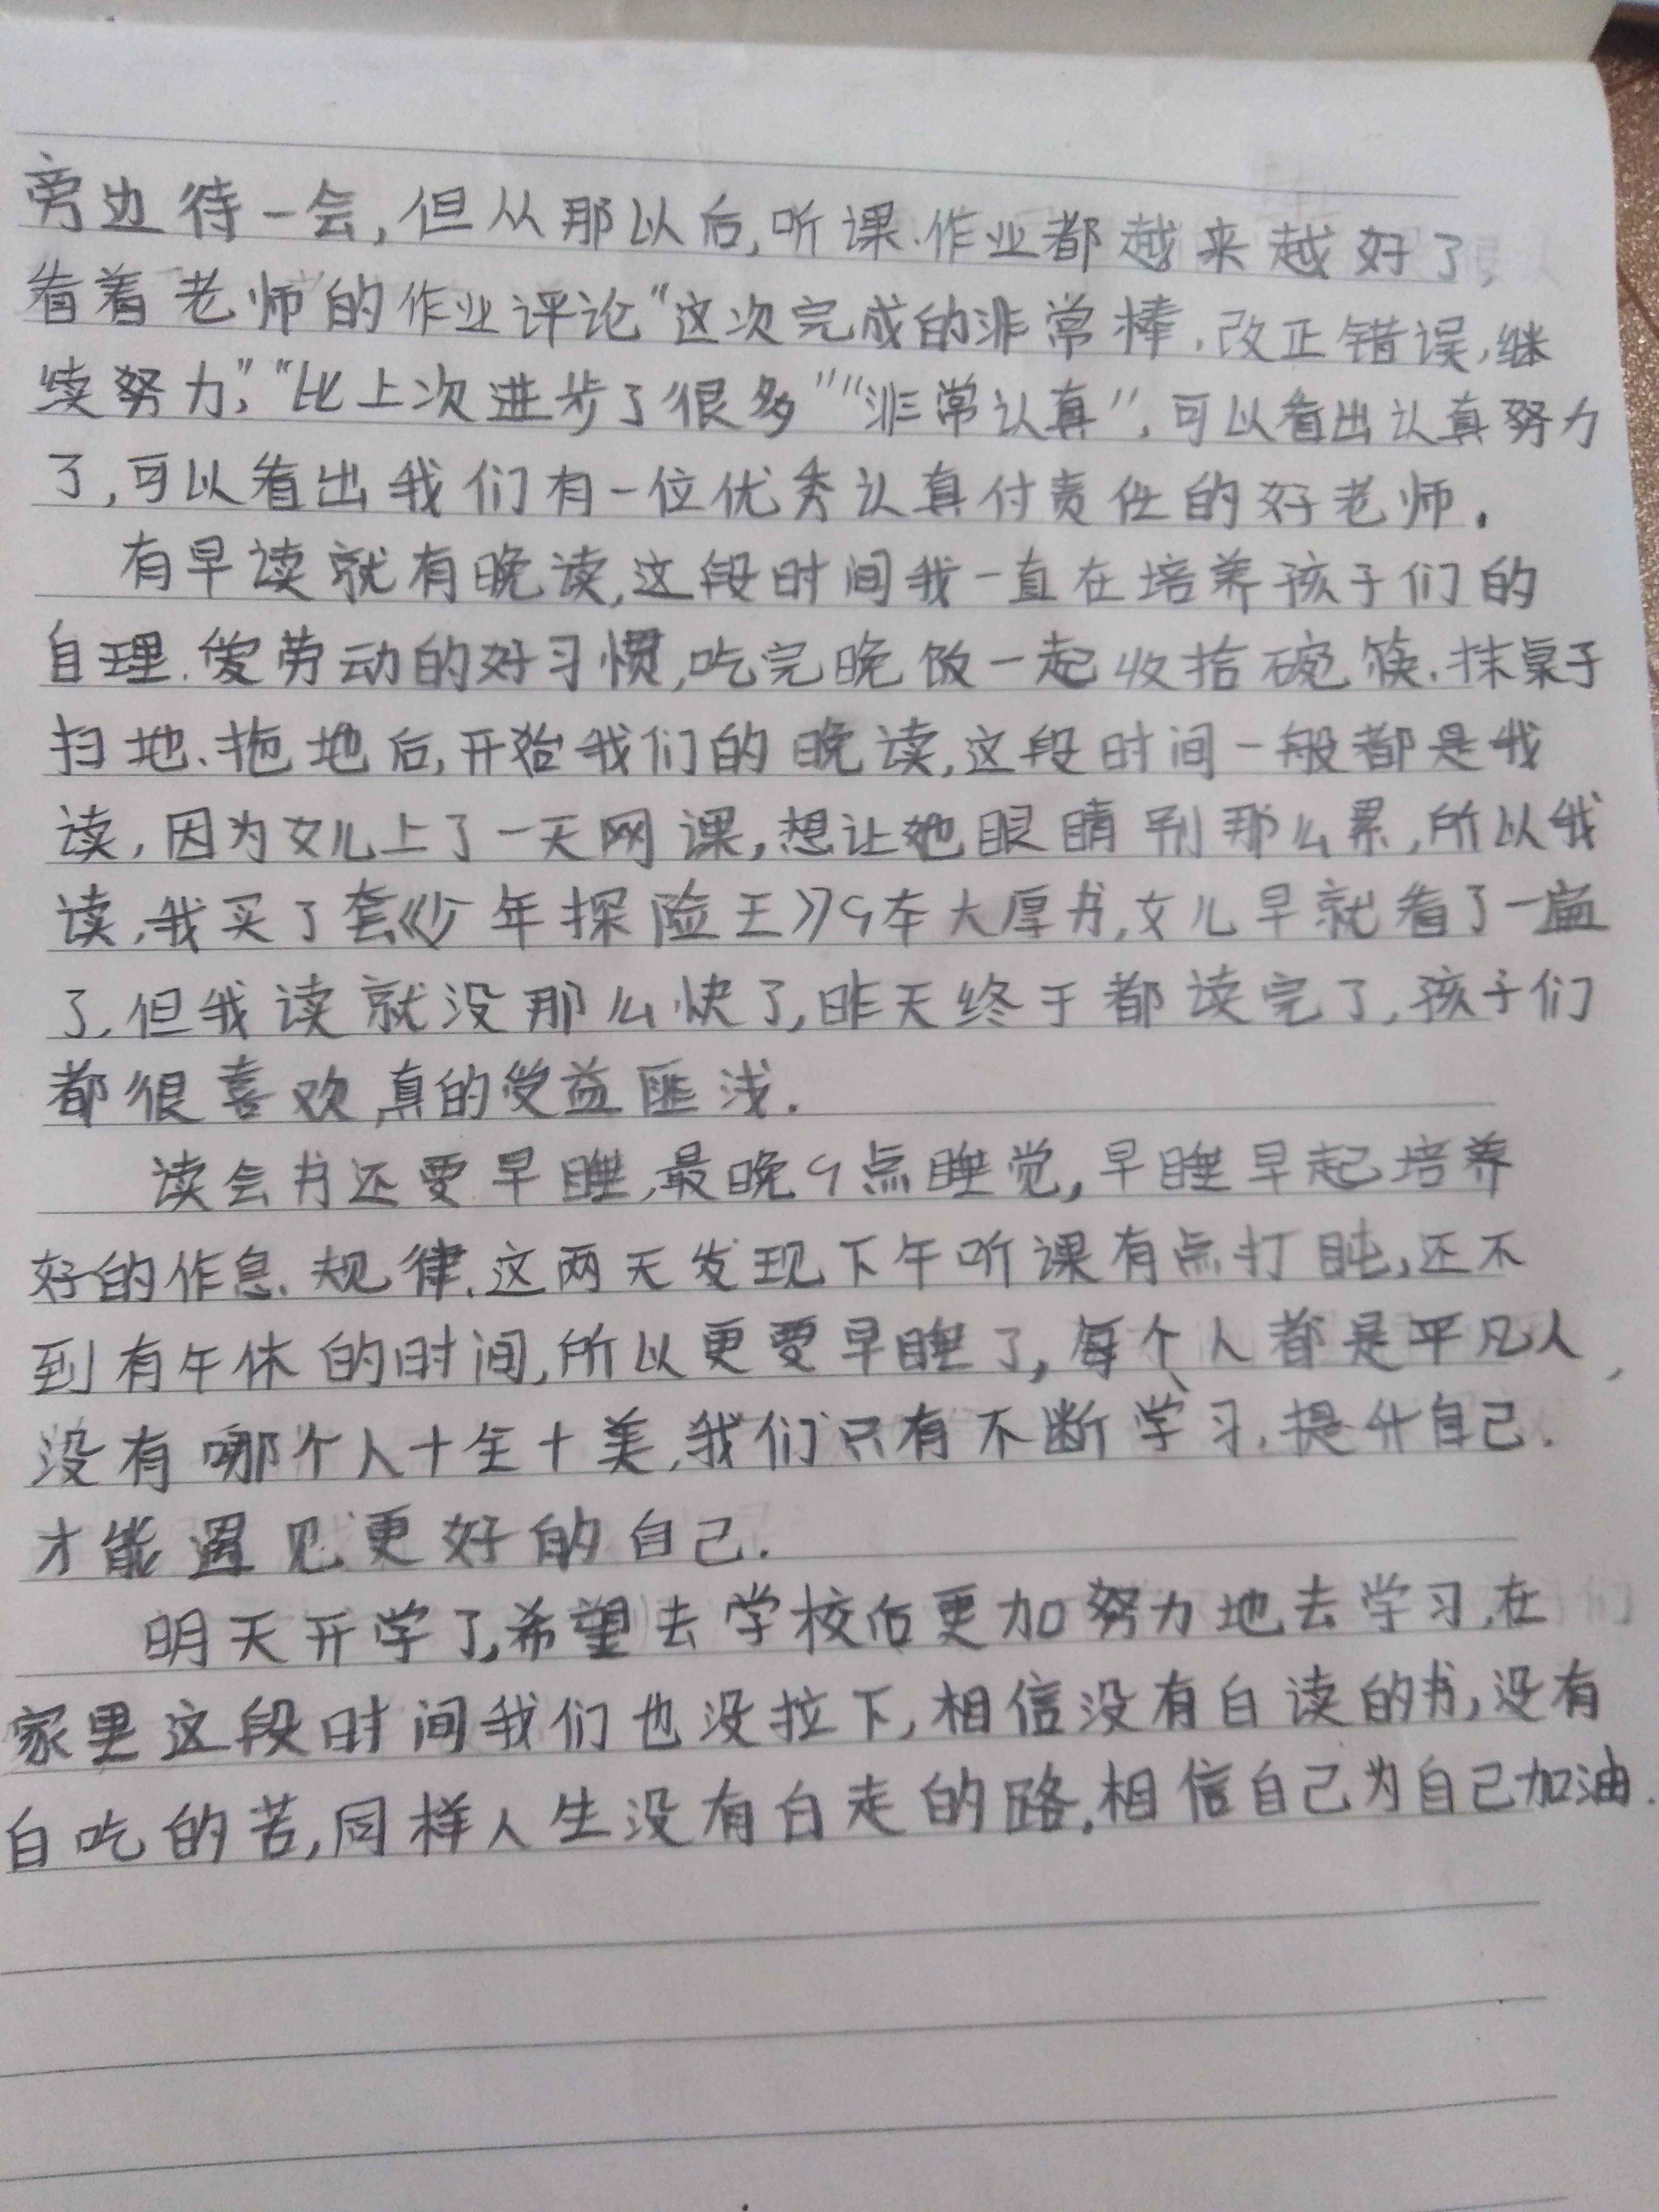 旁边待一会,但从那以后,听课.作业都越来越好了,
看着老师的作业评论“这次完成的非常棒.改正错误,继
续努力”,“比上次进步了很多”“非常认真”,可以看出认真努力
了,可以看出我们有一位优秀认真付责任的好老师.
有早读就有晚读,这段时间我一直在培养孩子们的
自理.爱劳动的好习惯,吃完晚饭一起收拾碗筷.抹桌子
扫地.拖地后,开始我们的晚读,这段时间一般都是我
读,因为女儿上了一天网课,想让她眼睛别那么累,所以我
读,我买了套《少年探险王》9本大厚书,女儿早就看了一遍
了,但我读就没那么快了,昨天终于都读完了,孩子们
都很喜欢,真的受益匪浅.
读会书还要早睡,最晚9点睡觉,早睡早起培养
好的作息.规律.这两天发现下午听课有点打盹,还不
到有午休的时间,所以更要早睡了,每个人都是平凡人,
没有哪个人十全十美,我们只有不断学习.提升自己.
才能遇见更好的自己.
明天开学了,希望去学校后更加努力地去学习,在
家里这段时间我们也没拉下,相信没有白读的书,没有
白吃的苦,同样人生没有白走的路.相信自己为自己加油.